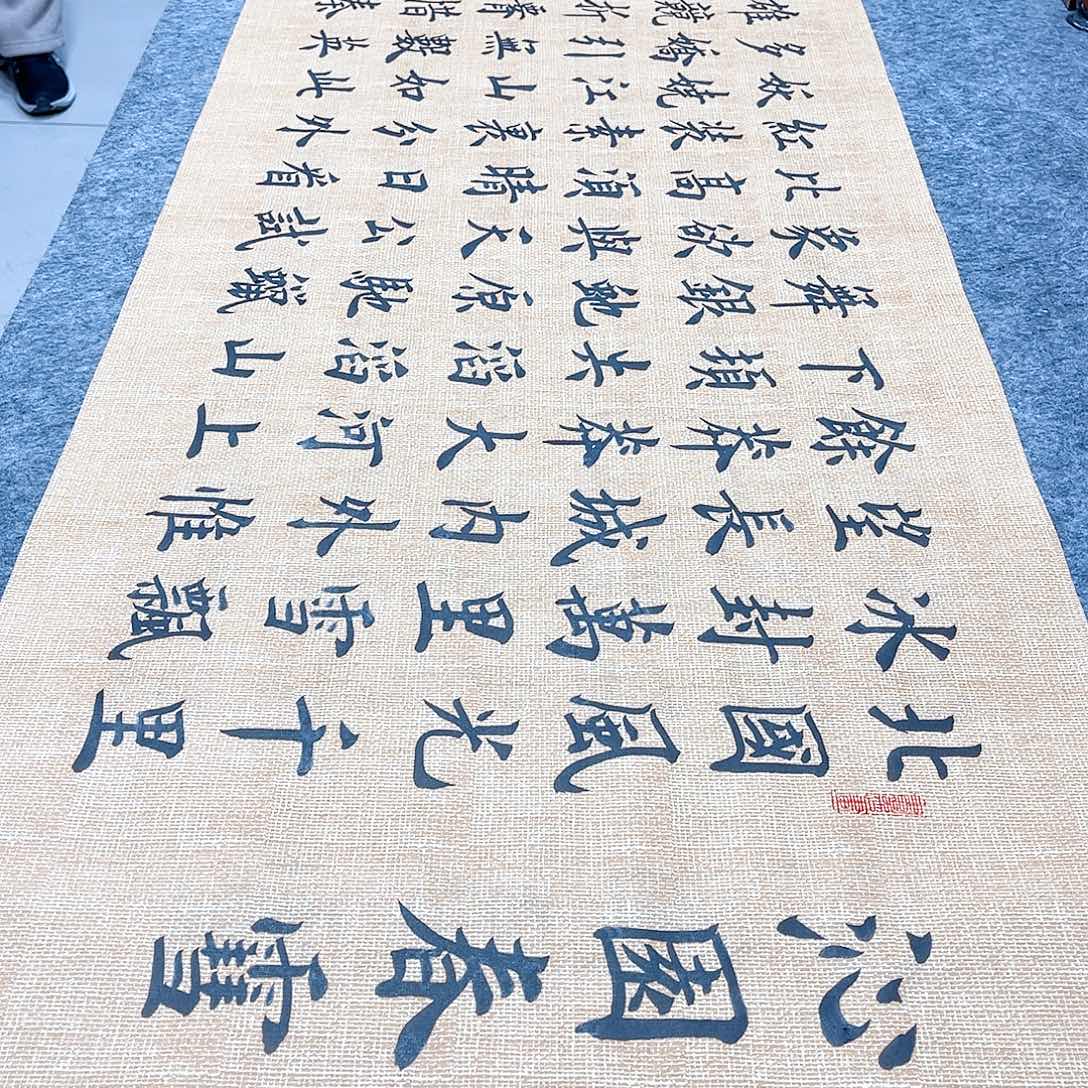 沁園春雪
北國風光千里
冰封萬里雪飄
望長城内外惟
餘莽莽大河上
下頓失滔滔山
舞銀蛇原馳蠟
象欲與天公試
比高須晴日看
紅裝素裹分外
妖嬈江山如此
多嬌引無數英
雄競折腰惜秦